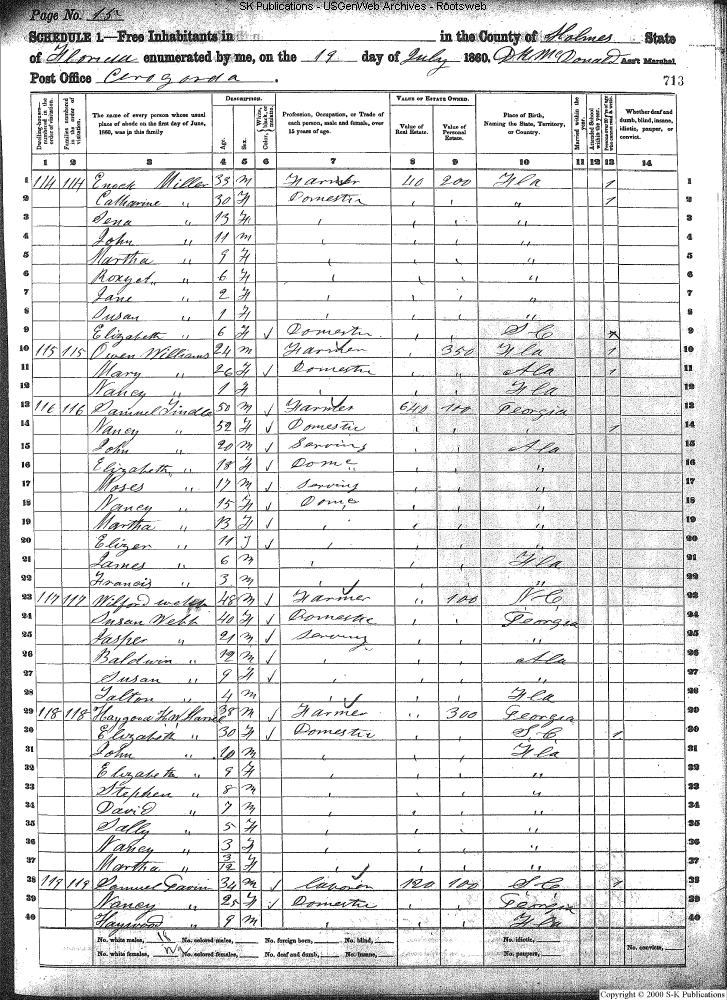 SK Publications - USGenWeb Archives - Rootsweb
Page No. 15
SCHEDULE 1.—Free Inhabitants in in the County of Holmes State
of Florida enumerated by me, on the 19 day of July 1860. McDonald Ass't Marshal.
Post Office Cerogorda.
713
DESCRIPTION. VALUE OF ESTATE OWNED.
Dwelling-houses—numbered in the order of visitation. Families numbered in the order of visitation. The name of every person whose usual place of abode on the first day of June, 1860, was in this family Age. Sex. Color, White, black, or mulatto. Profession, Occupation, or Trade of each person, male and female, over 15 years of age. Value of Real Estate. Value of Personal Estate. Place of Birth, Naming the State, Territory, or Country. Married within the year. Attended School within the year. Persons over 20 y'rs of age who cannot read & write. Whether deaf and dumb, blind, insane, idiotic, pauper, or convict.
1 2 3 4 5 6 7 8 9 10 11 12 13 14
1 114 114 Enock Miller 33 m Farmer 40 200 Fla 1 1
2 Catharine " 30 F Domestic " 1 2
3 Sena " 13 F " 3
4 John " 11 m " 4
5 Martha " 9 F " 5
6 Roxyet " 6 F " 6
7 Jane " 2 F " 7
8 Susan " 1 F " 8
9 Elizabeth " 6 F Domestic S C 9
10 115 115 Owen Williams 24 m Farmer 350 Fla 1 10
11 Mary " 26 F Domestic Ala 1 11
12 Nancy " 1 F Fla 12
13 116 116 Samuel 50 m Farmer 640 100 Georgia 13
14 Nancy " 52 F Domestic 1 14
15 John " 20 m Serving Ala 15
16 Elizabeth " 18 F Dome " 16
17 Moses " 17 m Serving " 17
18 Nancy " 15 F Dome " 18
19 Martha " 13 F " 19
20 Elizer " 11 J " 20
21 James " 6 m Fla 21
22 Francis " 3 m " 22
23 117 117 Wilford 48 m Farmer " 100 N-C 23
24 Susan Webb 40 F Domestic Georgia 24
25 Jasper " 21 m Serving " 25
26 Baldwin " 12 m Ala 26
27 Susan " 9 F " 27
28 Talton " 4 m Fla 28
29 118 118 Haygood 38 m Farmer " 300 Georgia 29
30 Elizabeth " 30 F Domestic S. C 1 30
31 John " 10 m Fla 31
32 Elizabeth " 9 F " 32
33 Stephen " 8 m " 33
34 David " 7 m " 34
35 Sally " 5 F " 35
36 Nancy " 3 F " 36
37 Martha " 3/12 F " 37
38 119 119 Samuel Gavin 34 m Laborer 120 100 S-C 1 38
39 Nancy " 25 F Domestic Georgia 39
40 Haywood " 9 m Fla 40
No. white males, 18 No. colored males, No. foreign born, No. blind, No. idiotic, No. convicts,
No. white females, No. colored females, No. deaf and dumb, No. insane, No. paupers,
Copyright © 2000 S-K Publications